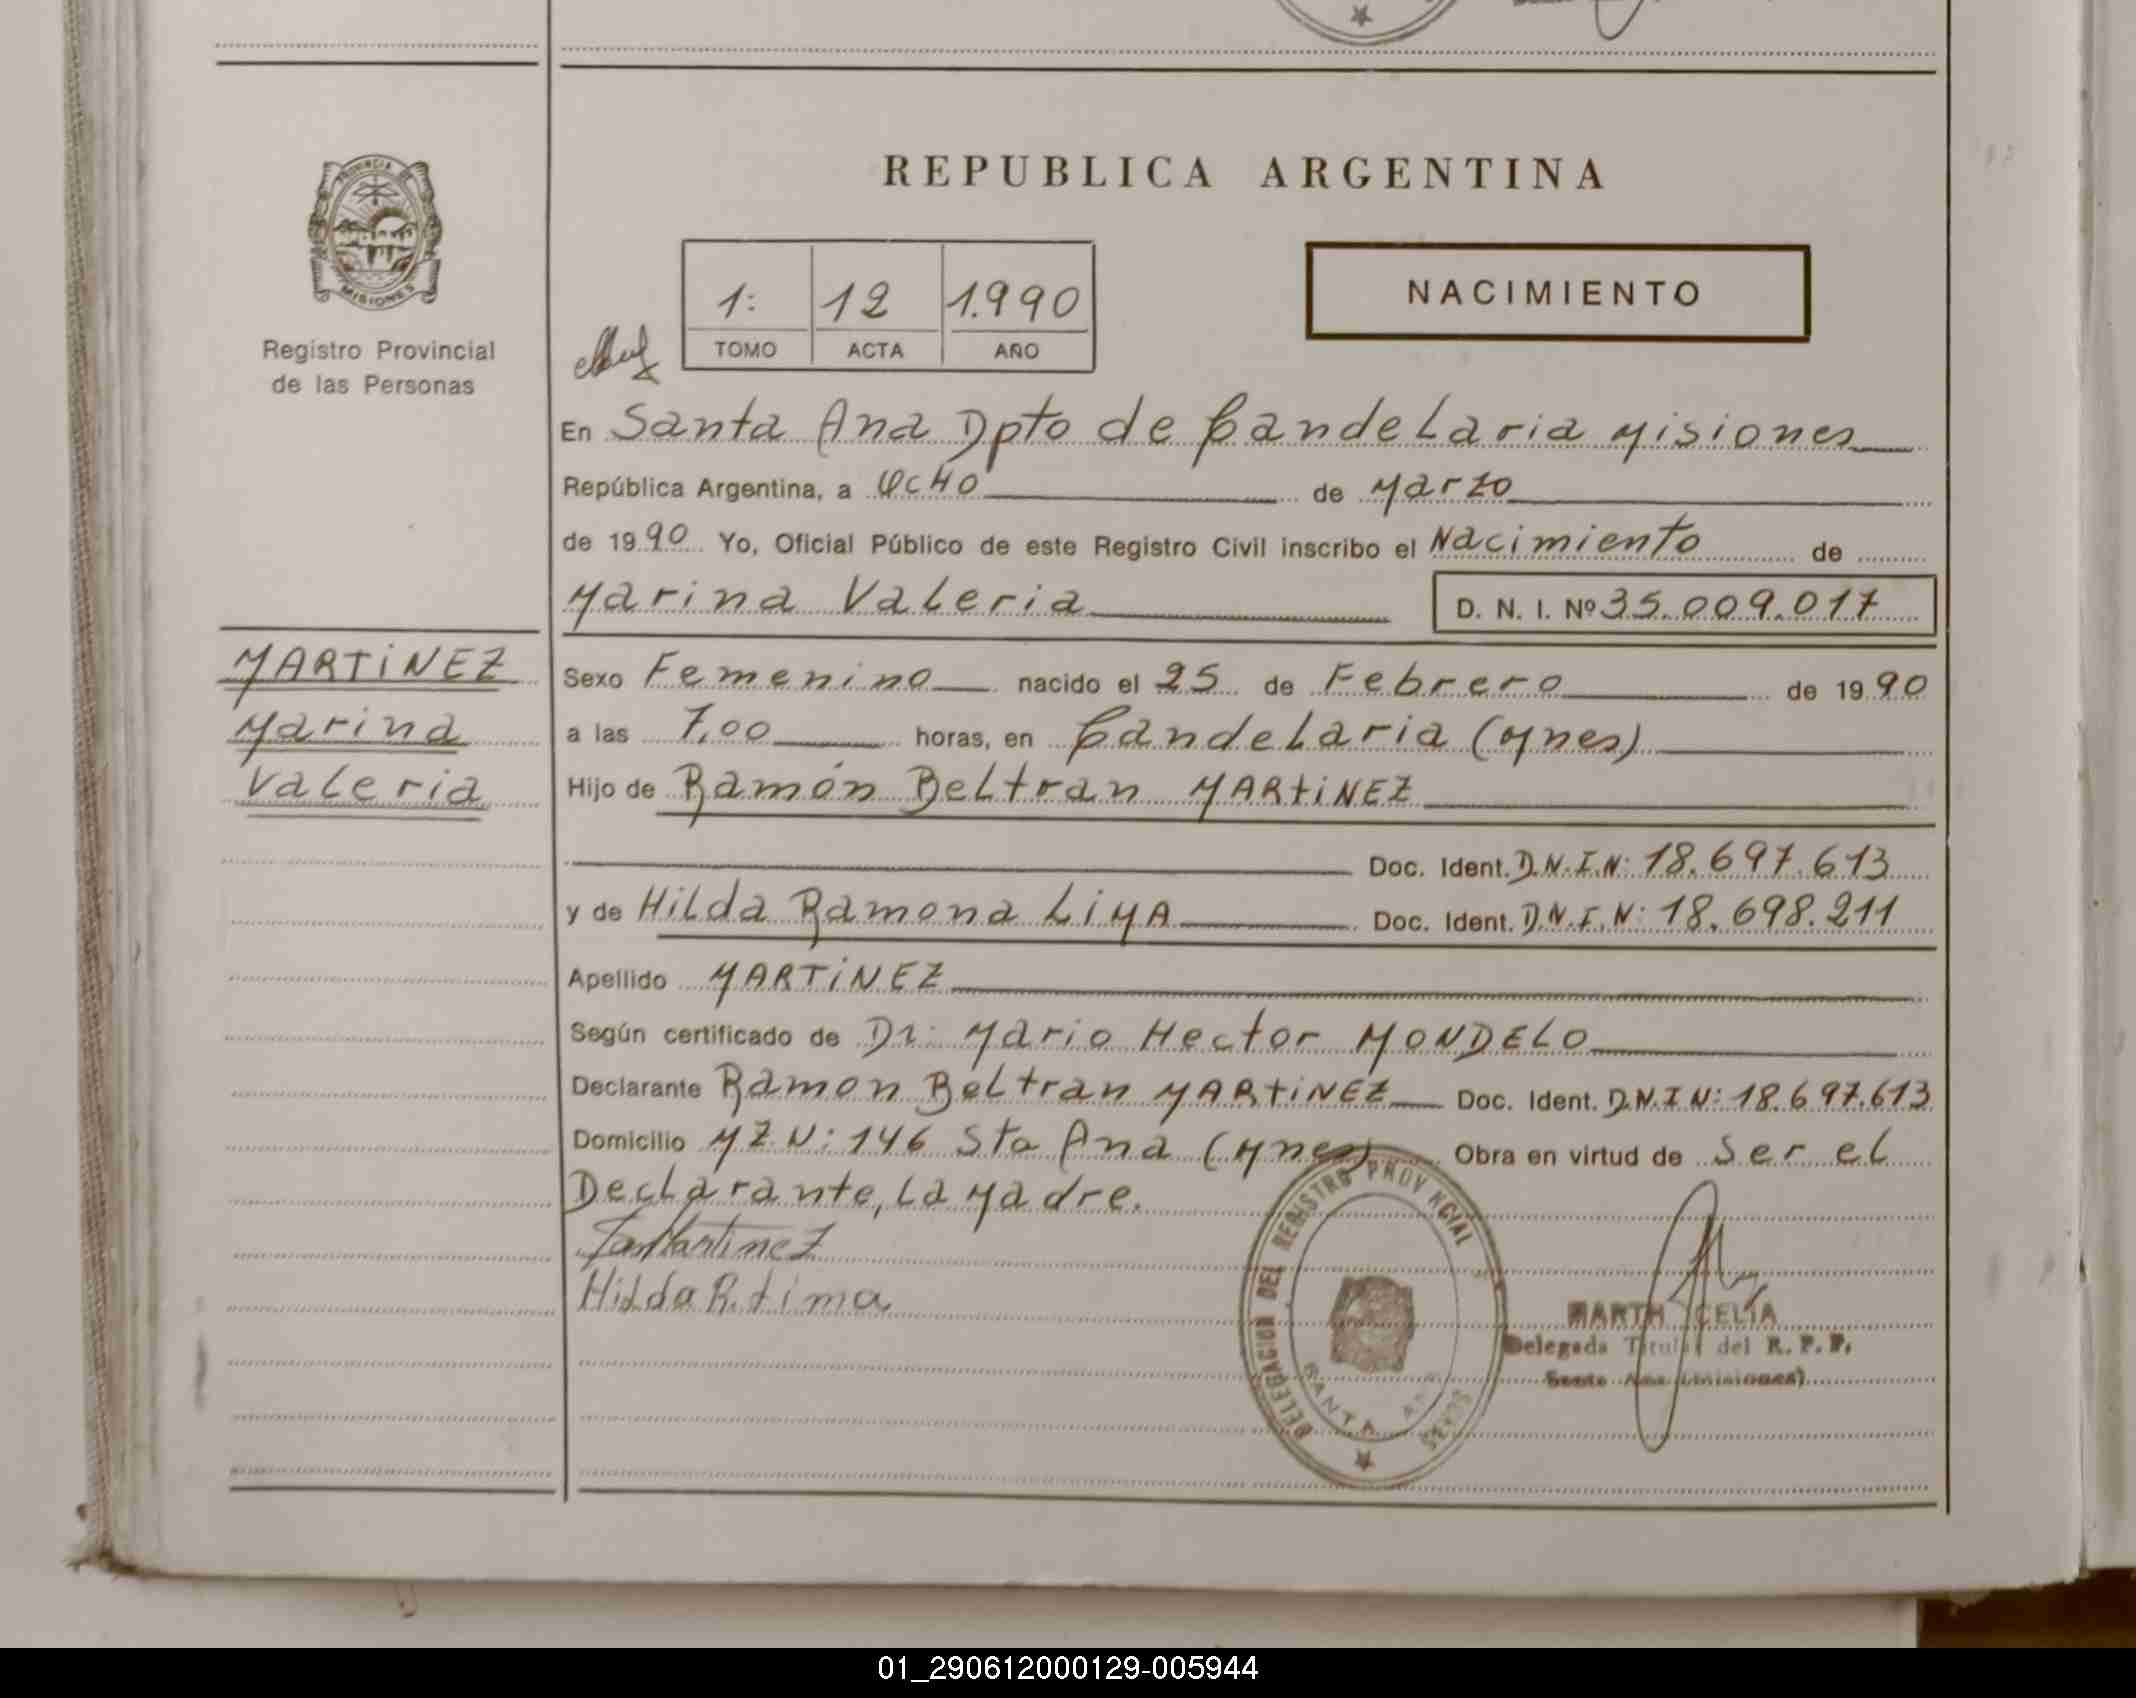 PROVINCIA DE
MISIONES
Registro Provincial
de las Personas
REPUBLICA ARGENTINA
1: 12 1.990
TOMO ACTA AÑO
NACIMIENTO
En Santa Ana Dpto de Candelaria Misiones
República Argentina, a Ocho de Marzo
de 1990 Yo, Oficial Público de este Registro Civil inscribo el Nacimiento de
Marina Valeria D. N. I. Nº 35.009.017
MARTiNEZ
Marina
Valeria
Sexo Femenino nacido el 25 de Febrero de 1990
a las 7,00 horas, en Candelaria (Mnes)
Hijo de Ramón Beltran MARtiNEZ
Doc. Ident. D.N.I.N: 18.697.613
y de Hilda Ramona LiMA Doc. Ident. D.N.I.N: 18.698.211
Apellido MARTiNEZ
Según certificado de Dr. Mario Hector MONDELO
Declarante Ramon Beltran MARtiNEZ Doc. Ident. D.N.I N: 18.697.613
Domicilio MZ.N: 146 Sta Ana (Mnes) Obra en virtud de Ser el
Declarante, la Madre.
Martinez
Hilda R. Lima
DELEGACION DEL REGISTRO PROVINCIAL
SANTA ANA
CELIA
Delegada Titular del R. P. P.
Santa Ana (Misiones)
01_290612000129-005944